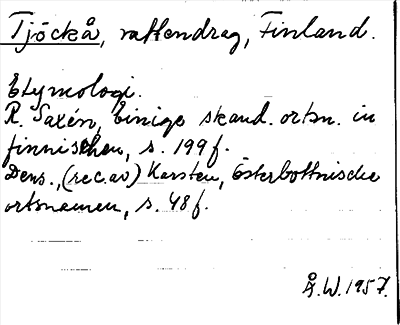 Tjöckå, vattendrag, Finland.
Etymologi.
R. Saxén, Einige skand. ortsn. in
finnischen, s. 199 f.
Dens., (rec. av) Karsten, Österbottnische
ortsnamen, s. 48 f.
Å.W. 1957.